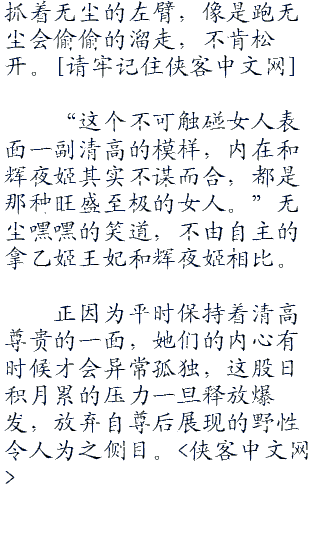 抓着无尘的左臂，像是跑无
尘会偷偷的溜走，不肯松
开。[请牢记住侠客中文网]
“这个不可触碰女人表
面一副清高的模样，内在和
辉夜姬其实不谋而合，都是
那种旺盛至极的女人。”无
尘嘿嘿的笑道，不由自主的
拿乙姬王妃和辉夜姬相比。
正因为平时保持着清高
尊贵的一面，她们的内心有
时候才会异常孤独，这股日
积月累的压力一旦释放爆
发，放弃自尊后展现的野性
令人为之侧目。<侠客中文网
>